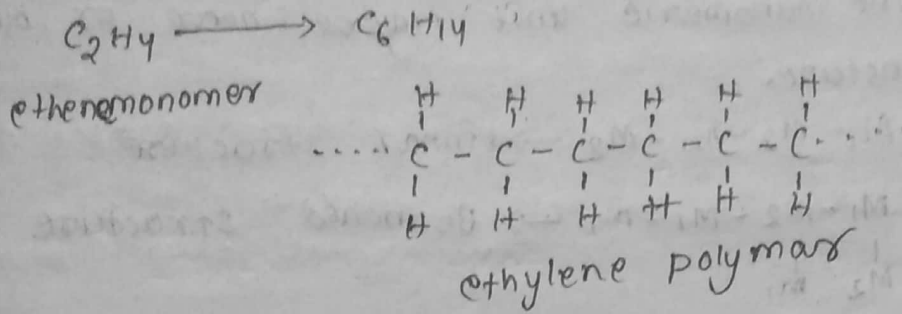 C2H4 ⟶ C6H14
ethenemonomer
H H H H H H
.... C - C - C - C - C - C . . .
H H H H H H
ethylene polymar